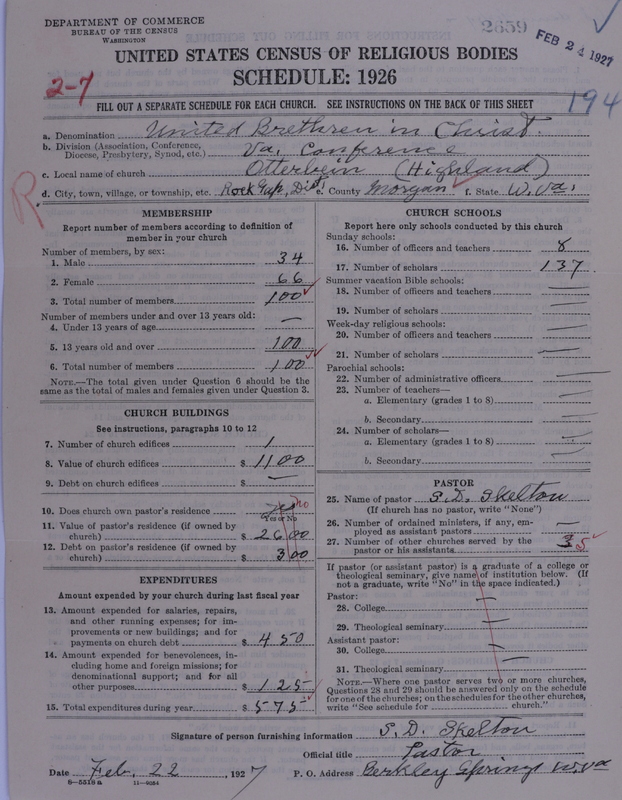 DEPARTMENT OF COMMERCE
BUREAU OF THE CENSUS
WASHINGTON
2659
FEB 24 1927
UNITED STATES CENSUS OF RELIGIOUS BODIES
SCHEDULE: 1926
2-7
194
FILL OUT A SEPARATE SCHEDULE FOR EACH CHURCH. SEE INSTRUCTIONS ON THE BACK OF THIS SHEET
a. Denomination United Brethren in Christ.
b. Division (Association, Conference, Diocese, Presbytery, Synod, etc.) Va. Conference
c. Local name of church Otterbein (Highland)
R
d. City, town, village, or township, etc. Rock Gap, Dist. e. County Morgan f. State W. Va.
MEMBERSHIP
Report number of members according to definition of
member in your church
Number of members, by sex:
1. Male 34
2. Female 66
3. Total number of members 100
Number of members under and over 13 years old:
4. Under 13 years of age —
5. 13 years old and over 100
6. Total number of members 100
NOTE.—The total given under Question 6 should be the
same as the total of males and females given under Question 3.
CHURCH BUILDINGS
See instructions, paragraphs 10 to 12
7. Number of church edifices 1
8. Value of church edifices $ 1100
9. Debt on church edifices $ —
10. Does church own pastor's residence no
Yes or No
11. Value of pastor's residence (if owned by
church) $ 2600
12. Debt on pastor's residence (if owned by
church) $ 300
EXPENDITURES
Amount expended by your church during last fiscal year
13. Amount expended for salaries, repairs,
and other running expenses; for im-
provements or new buildings; and for
payments on church debt $ 450
14. Amount expended for benevolences, in-
cluding home and foreign missions; for
denominational support; and for all
other purposes $ 125
15. Total expenditures during year $ 575
CHURCH SCHOOLS
Report here only schools conducted by this church
Sunday schools:
16. Number of officers and teachers 8
17. Number of scholars 137
Summer vacation Bible schools:
18. Number of officers and teachers —
19. Number of scholars —
Week-day religious schools:
20. Number of officers and teachers —
21. Number of scholars —
Parochial schools:
22. Number of administrative officers —
23. Number of teachers—
a. Elementary (grades 1 to 8) —
b. Secondary —
24. Number of scholars—
a. Elementary (grades 1 to 8) —
b. Secondary —
PASTOR
25. Name of pastor S. D. Skelton
(If church has no pastor, write "None")
26. Number of ordained ministers, if any, em-
ployed as assistant pastors —
27. Number of other churches served by the
pastor or his assistants 3 5
If pastor (or assistant pastor) is a graduate of a college or
theological seminary, give name of institution below. (If
not a graduate, write "No" in the space indicated.)
Pastor:
28. College —
29. Theological seminary —
Assistant pastor:
30. College —
31. Theological seminary —
NOTE.—Where one pastor serves two or more churches,
Questions 28 and 29 should be answered only on the schedule
for one of the churches; on the schedules for the other churches,
write "See schedule for church."
Signature of person furnishing information S. D. Skelton
Official title Pastor
Date Feb. 22, 1927
P. O. Address Berkley Springs W. Va
8-5518a 11-9054